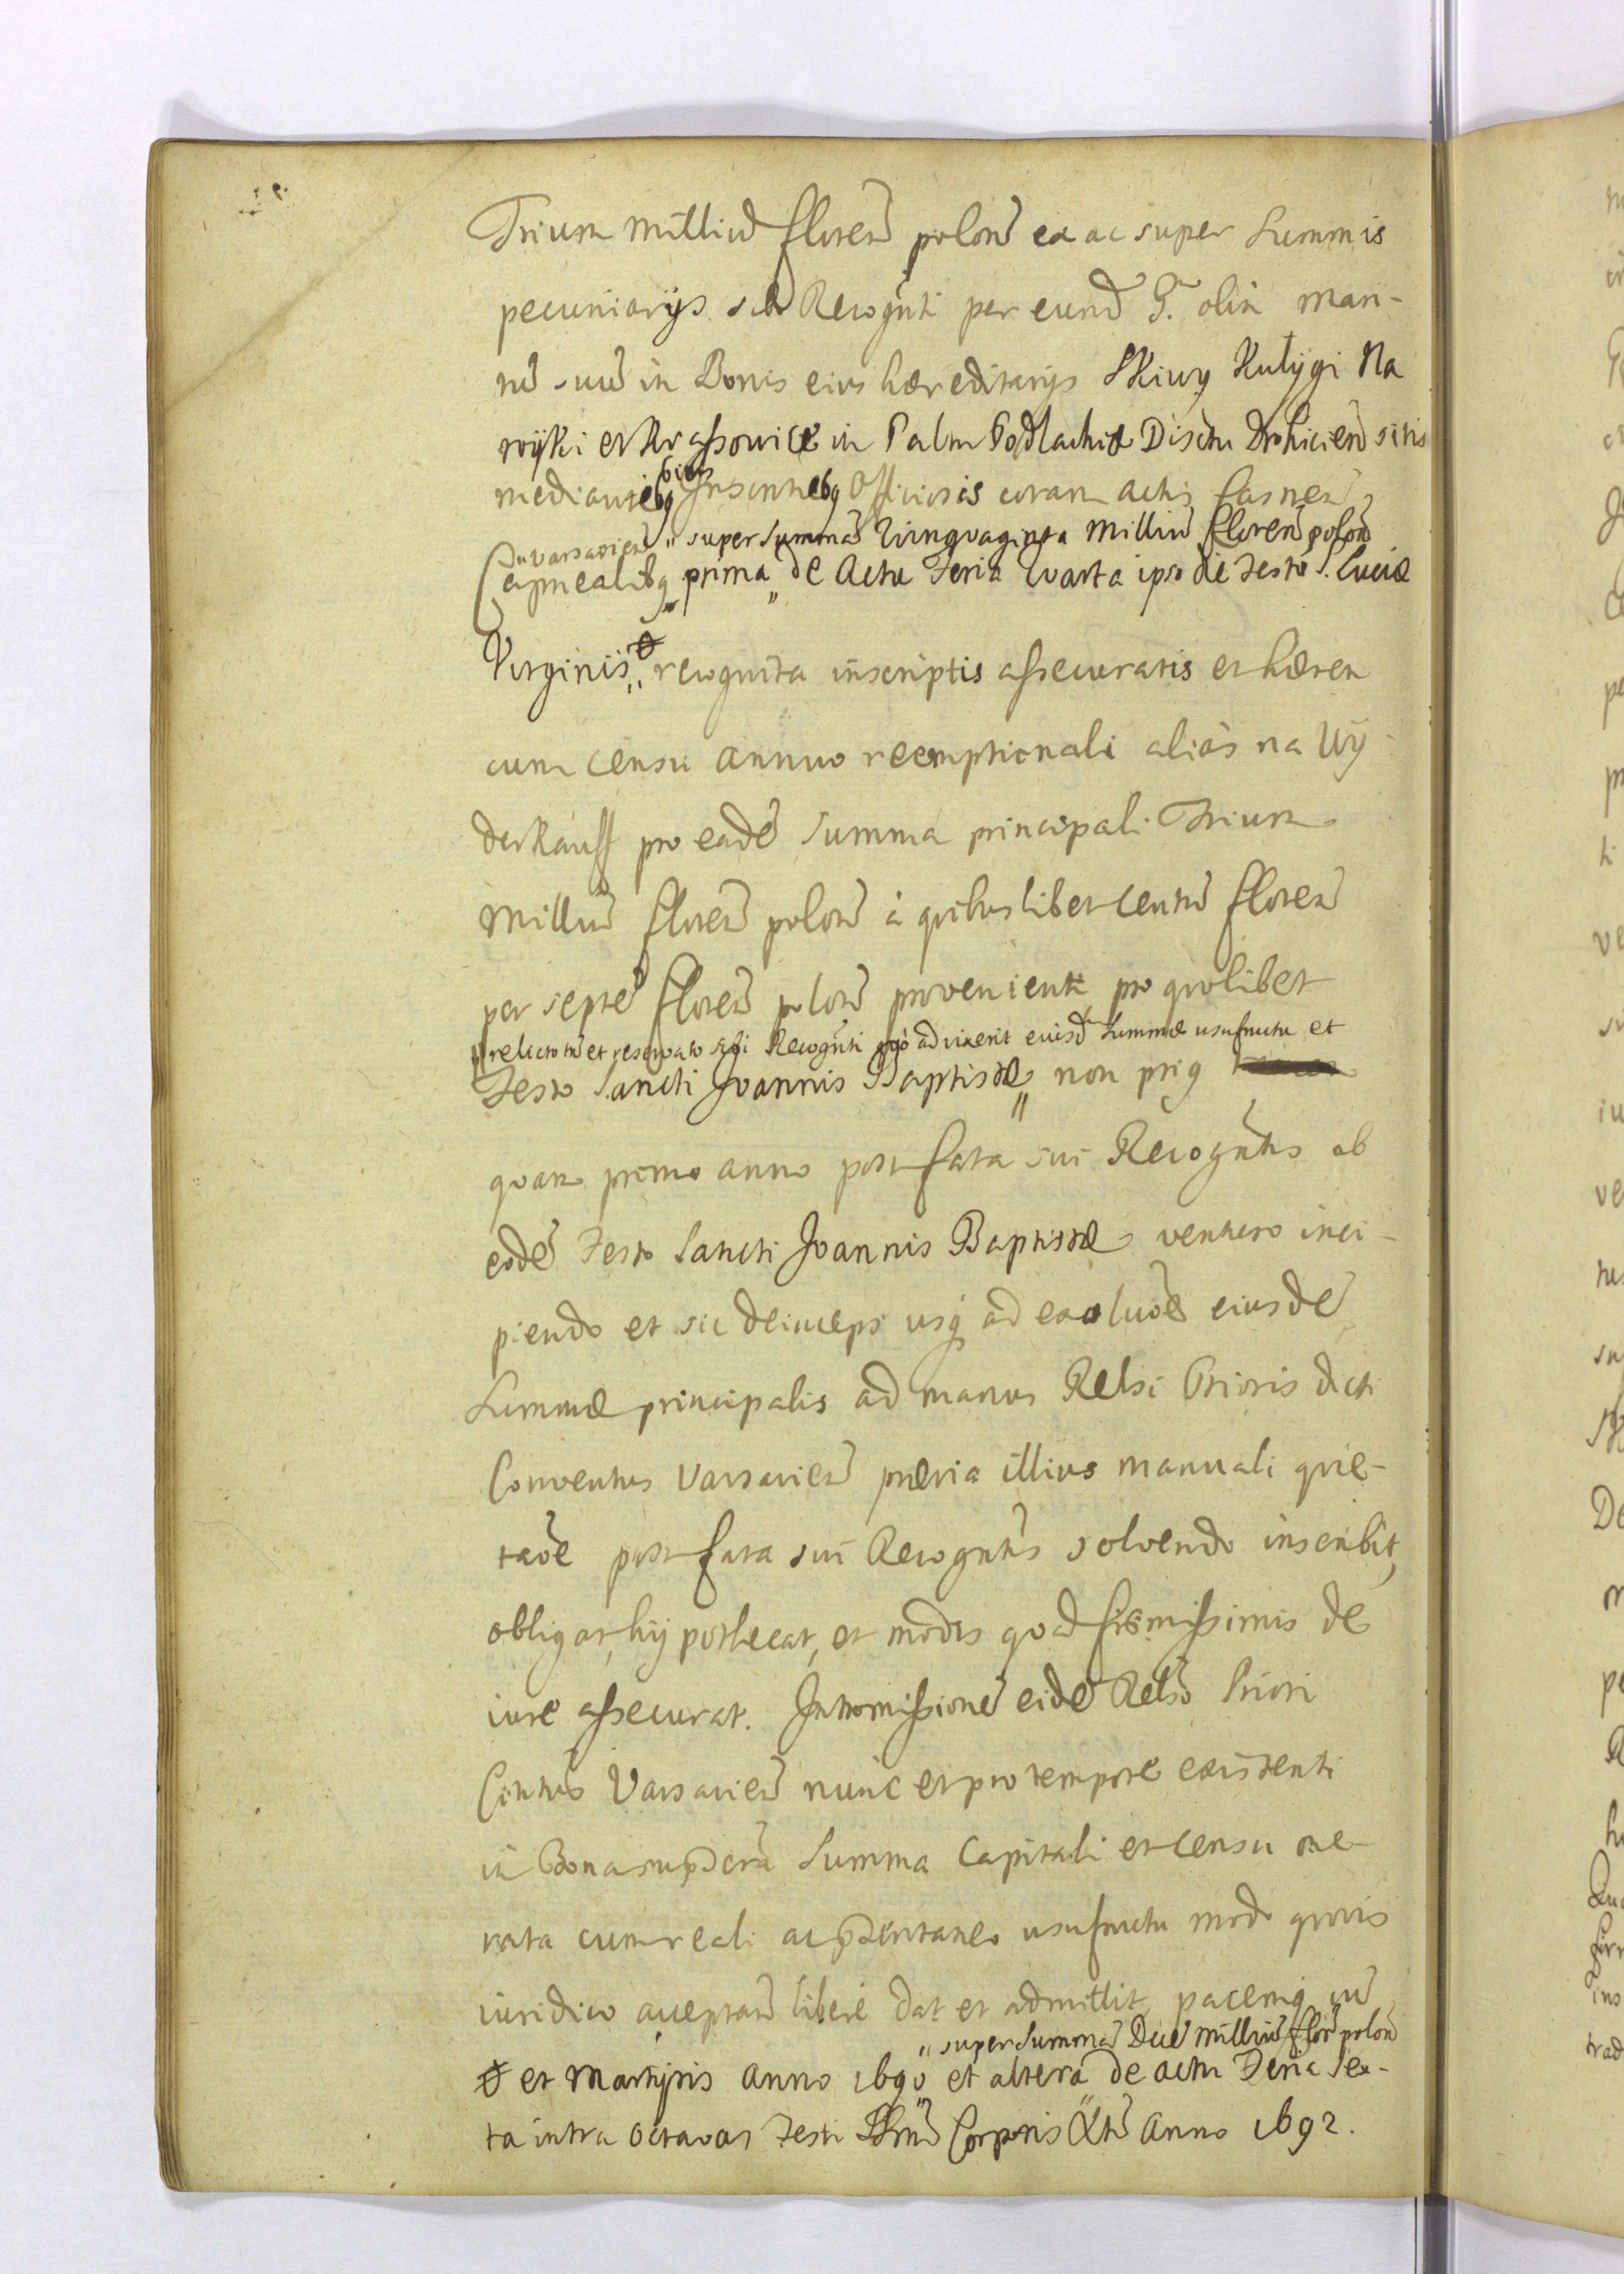 Trium milliu florẽ polon̄ ex ac super Summis
pecuniarijs sibi Recogñti per eund̄ G. olim mari-
tũ suũ in Bonis eius hæreditarijs Skiwy Kutygi Na
wyki et Krassowice in Palatu Podlachiæ Districtu Drohicien̄ sitis
mediantibq binis Inscriptnibq Officiosis coram actis Castren̄
Varsavien̄ „super Summã Quinquaginta Milliũ floren̄ polon̄
capnealibq „prima„ de Actu Feria Quarta ipso die Festo S. Luciæ
Virginis „ recognita inscriptis assecuratis et hæren̄
cum censu annuo reemptionali aliàs na Wy
derkauff pro eadẽ Summa principali Trium
Milliũ floren̄ polon̄ à quibuslibet centũ floren̄
per septẽ floren̄ polon̄ provenienti pro quolibet
„relicto tñ et reservato sibi Recogñti quò advixerit eiusd̄ Summæ usufructu et
Festo Sancti Joannis Baptistæ „ non priq
quam primo anno post fata sui Recogñtis ab
eodẽ Festo Sancti Joannis Baptistæ venturo inci-
piendo et sic deinceps usq ad exoluõẽ eiusdẽ
Summæ principalis ad manus Relsi Prioris dicti
Conventus Varsavien̄ prævia illius manuali quie-
taõe post fata sui Recogñtis solvendo inscribit,
obligat, hypothecat, et modis quod firmissimis de
iure assecurat. Intromissionẽ eidẽ Relso Priori
Cõntus Varsavien̄ nunc et pro tempore existenti
in Bona supd̄cra Summa Capitali et censu one-
rata cum reali ac p̄dentaneo usufructu modo quovis
iuridico acceptan̄ liberè dat et admittit, pacemq cũ
„super Summã Duũ milliũ flor̄ polon̄
et Martyris Anno 1690 et altera „ de actu Feria Sex-
ta intra octavas Festi Ssmi Corporis Xti Anno 1692.